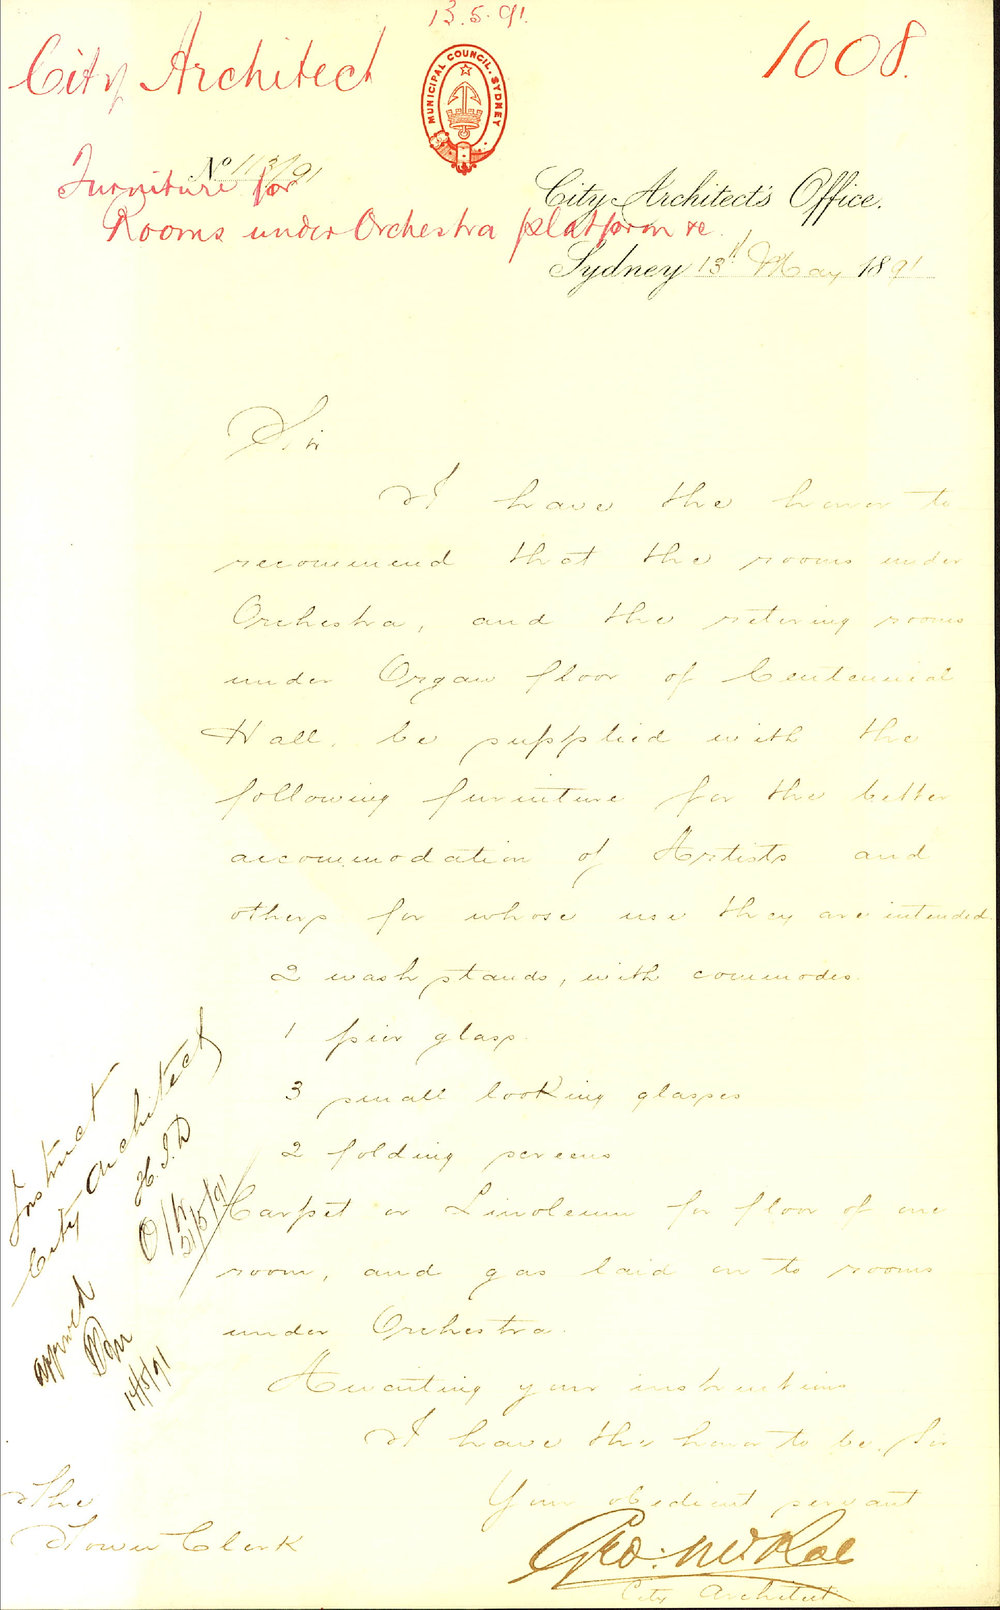 13.5.91.
City Architect
1008.
MUNICIPAL COUNCIL. SYDNEY
No 113/91
Furniture for
Rooms under Orchestra platform &c.
City Architect's Office.
Sydney 13th May 1891
Sir
I have the honor to
recommend that the rooms under
Orchestra, and the retiring rooms
under Organ floor of Centennial
Hall, be supplied with the
following furniture for the better
accommodation of Artists and
others for whose use they are intended.
2 wash stands, with commodes.
1 pier glass.
3 small looking glasses
2 folding screens
Carpet or Linoleum for floor of one
room, and gas laid on to rooms
under Orchestra.
Awaiting your instructions
I have the honor to be, Sir
Your obedient servant
Geo. McRae
City Architect
The
Town Clerk
Instruct
City Architect
H.J.D
21/5/91
approved
14/5/91